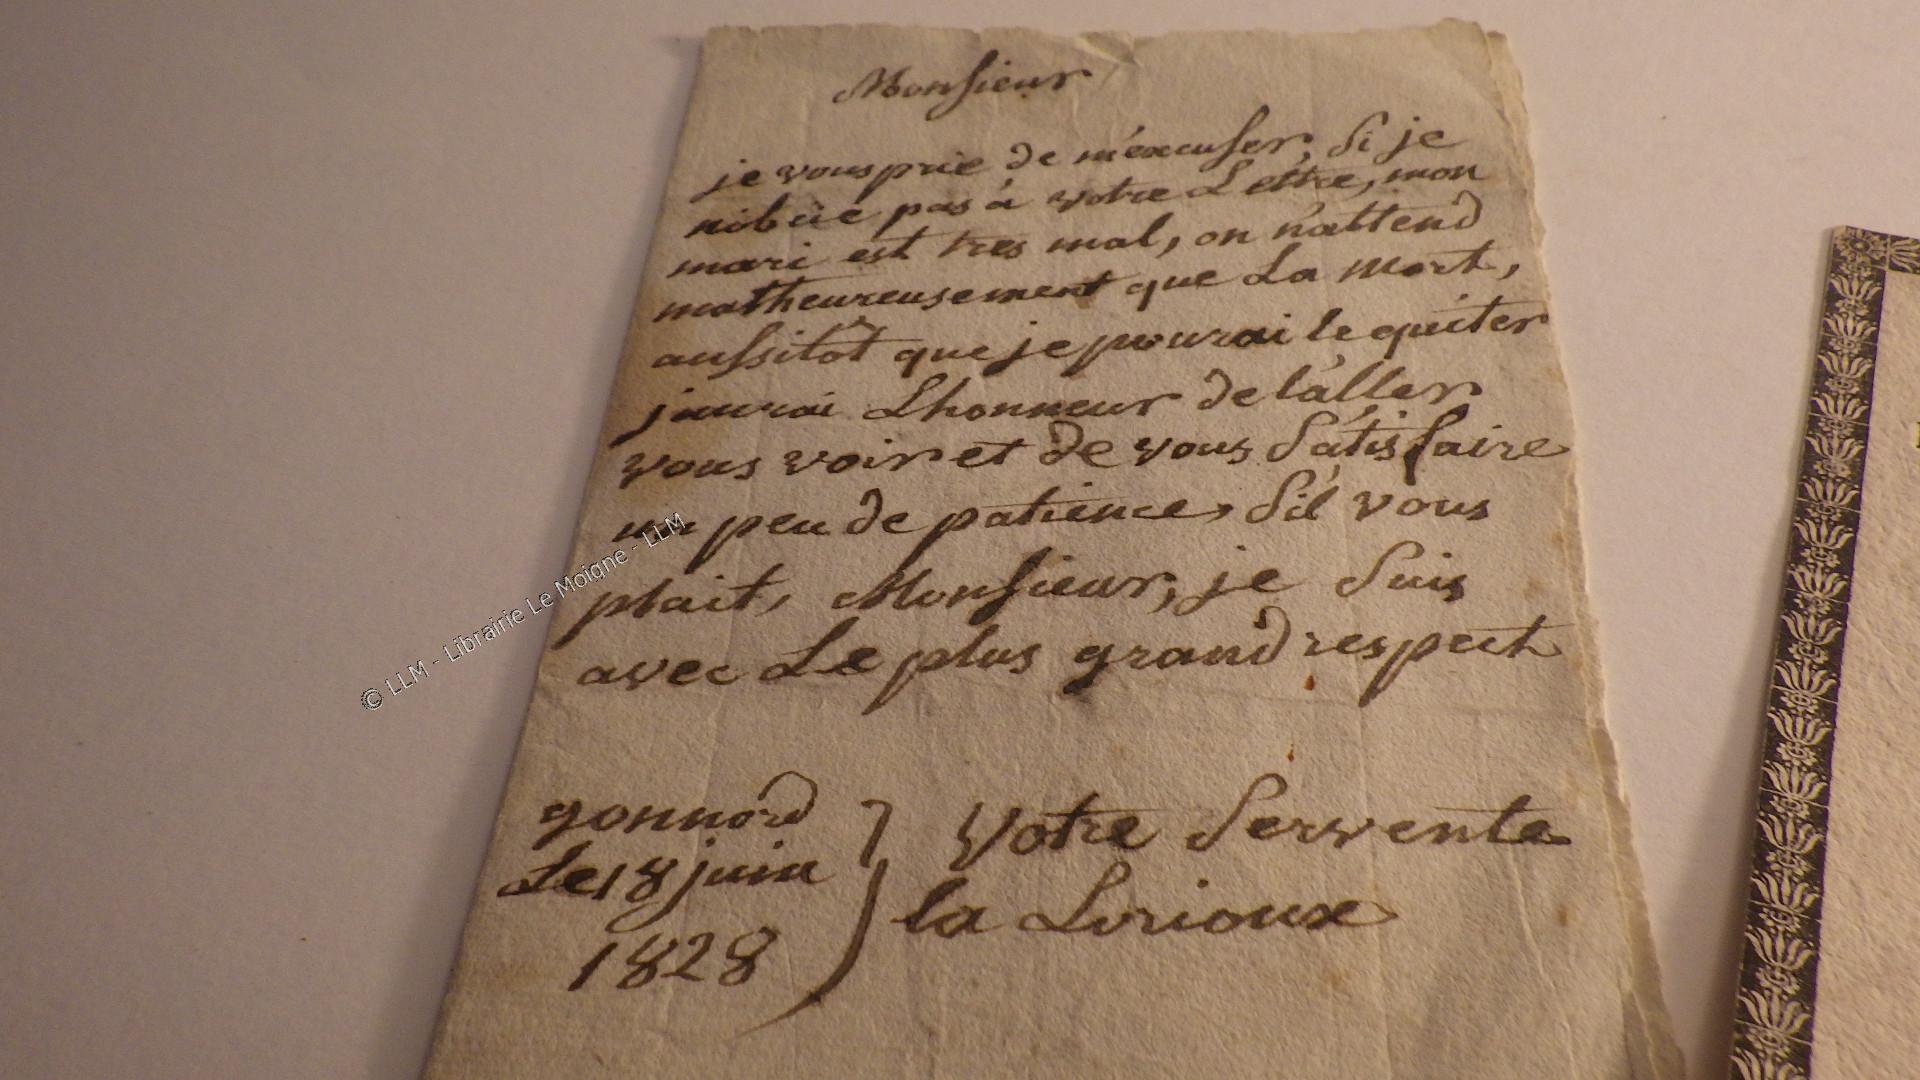 Monsieur
je vous prie de m'éxcuser, Si je
nobéie pas à votre Lettre, mon
mari est tres mal, on n'attend
matheureusement que La Mort,
aussitôt que je pourai le quiter
j'aurai Lhonneur de l'aller
vous voir et de vous Satisfaire
un peu de patience, S'il vous
plait, Monsieur, je Suis
avec Le plus grand respect
gonnord
Le 18 juin
1828
Votre Servente
la Lorioux
© LLM - Librairie Le Moigne - LLM